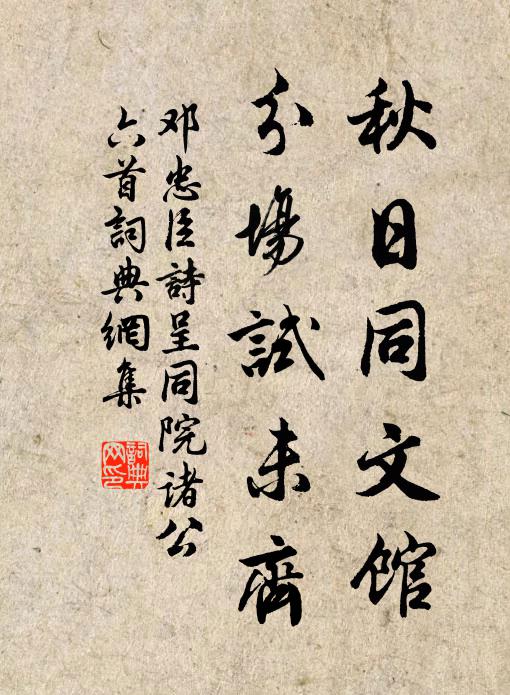 秋日同文館
分場試未齊
邓忠臣詩呈同院诸公
六首詞典網集
詞典網印